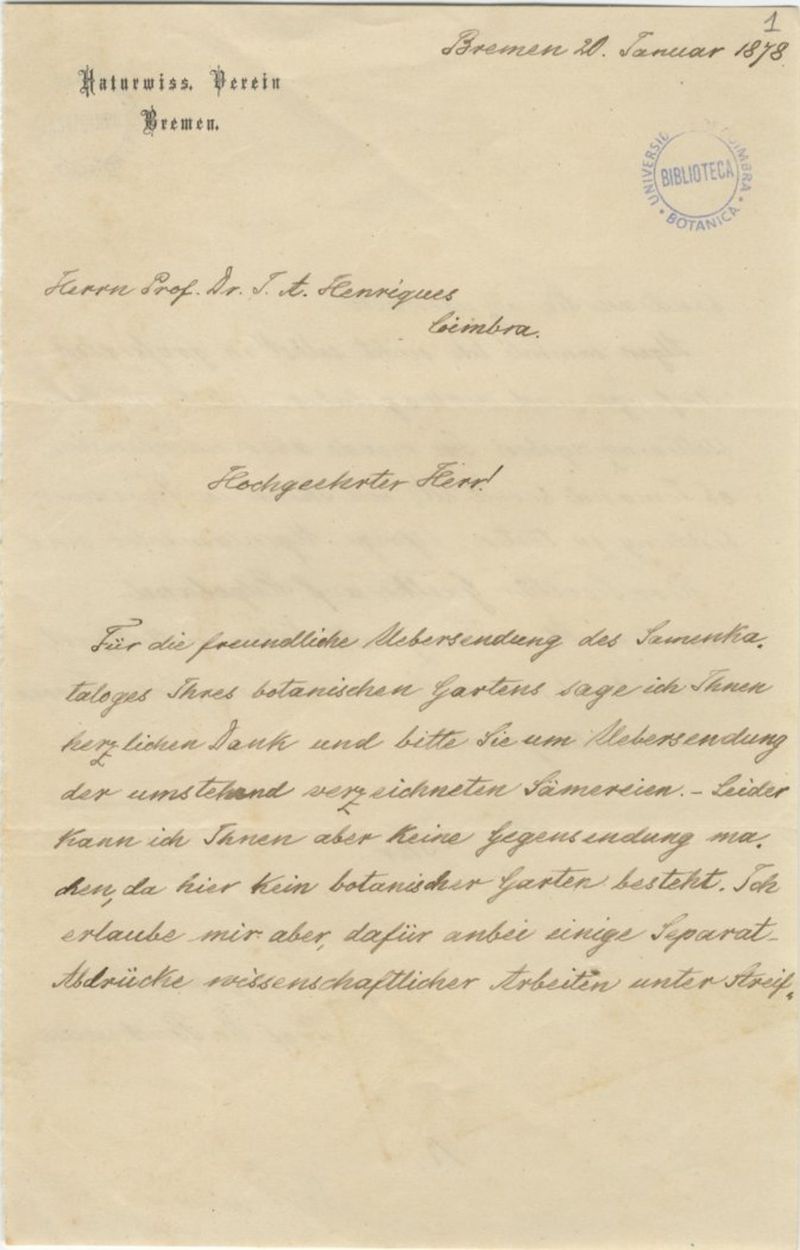 1
Bremen 20. Januar 1878.
Naturwiss. Verein
Bremen.
UNIVERSID COIMBRA
BIBLIOTECA
BOTANICA
Herrn Prof. Dr. J. A. Henriques
Coimbra.
Hochgeehrter Herr!
Für die freundliche Uebersendung des Samenka-
taloges Ihres botanischen Gartens sage ich Ihnen
herzlichen Dank und bitte Sie um Uebersendung
der umstehend verzeichneten Sämereien. – Leider
kann ich Ihnen aber keine Gegensendung ma-
chen, da hier kein botanischer Garten besteht. Ich
erlaube mir aber, dafür anbei einige Separat-
Abdrücke wissenschaftlicher Arbeiten unter Streif-